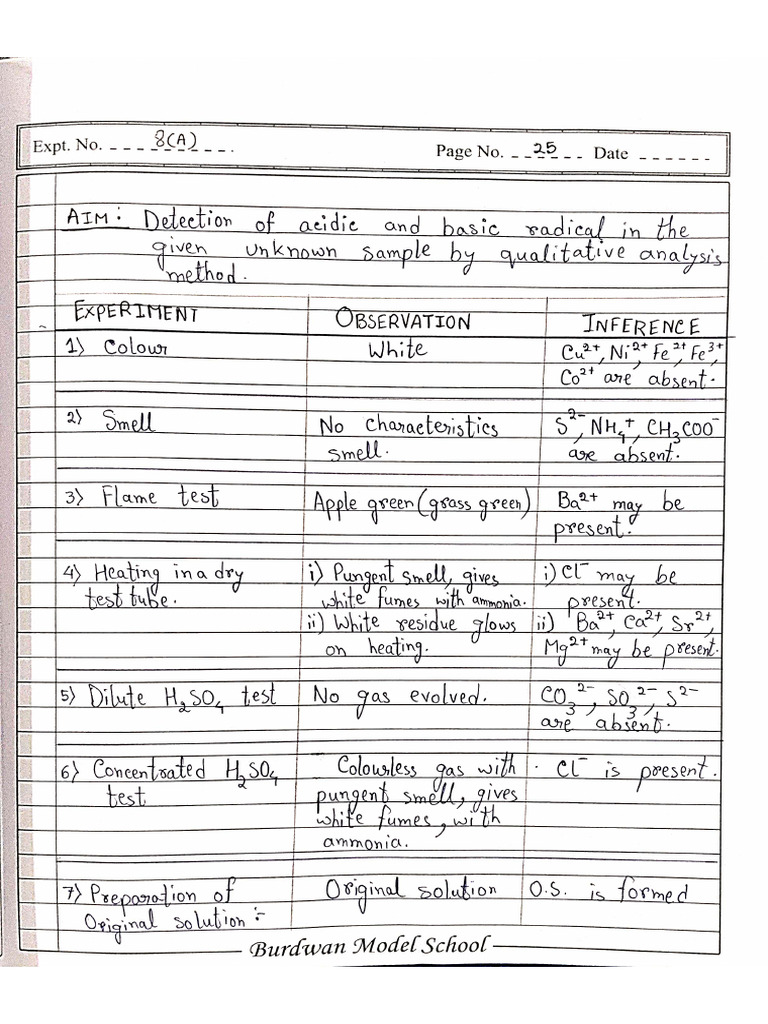 Expt. No. 8(A) Page No. 25 Date
AIM: Detection of acidic and basic radical in the
given unknown sample by qualitative analysis
method.
EXPERIMENT OBSERVATION INFERENCE
1) Colour White Cu²⁺, Ni²⁺, Fe²⁺, Fe³⁺,
Co²⁺ are absent.
2) Smell No characteristics S²⁻, NH₄⁺, CH₃COO⁻
smell. are absent.
3) Flame test Apple green (grass green) Ba²⁺ may be
present.
4) Heating in a dry i) Pungent smell, gives i) Cl⁻ may be
test tube. white fumes with ammonia. present.
ii) White residue glows ii) Ba²⁺, Ca²⁺, Sr²⁺,
on heating. Mg²⁺ may be present.
5) Dilute H₂SO₄ test No gas evolved. CO₃²⁻, SO₃²⁻, S²⁻
are absent.
6) Concentrated H₂SO₄ Colourless gas with Cl⁻ is present.
test pungent smell, gives
white fumes, with
ammonia.
7) Preparation of Original solution O.S. is formed
Original solution :-
Burdwan Model School